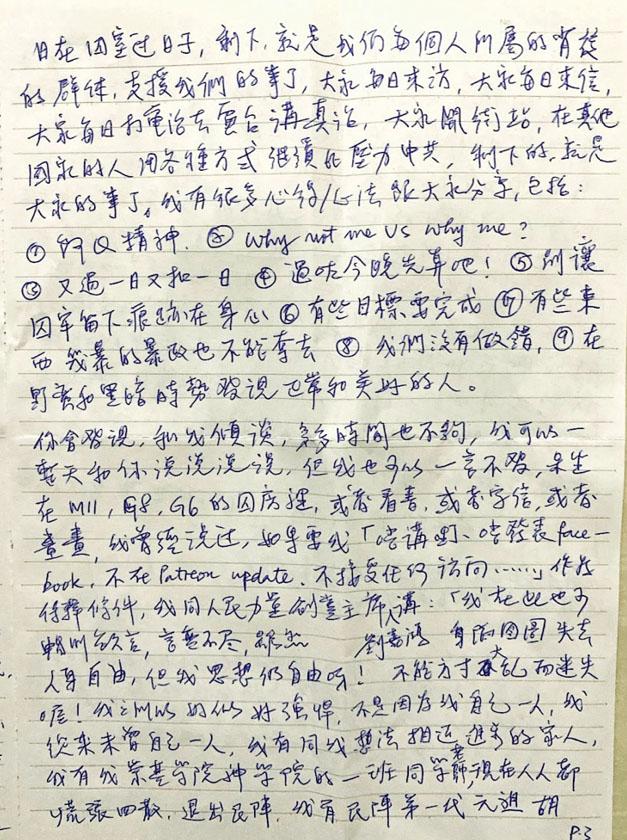 日在囚室过日子，剩下，就是我们每個人所屬的背後
的群体，支援我們的事了，大家每日來访，大家每日來信，
大家每日打電话去電台講真话，大家開街站，在其他
國家的人用各種方式继續施壓力中共，剩下的，就是
大家的事了。我有很多心得/心法跟大家分享，包括：
① 阿Q精神. ② Why not me VS why me?
③ 又過一日又扣一日 ④ 過咗今晚先算吧！ ⑤ 別讓
囚牢留下痕跡在身心 ⑥ 有些目標要完成 ⑦ 有些東
西幾暴的暴政也不能奪去 ⑧ 我們没有做錯，⑨ 在
野蛮和黑暗時勢發現正常和美好的人。
你會發現，和我傾谈，多多時間也不夠，我可以一
整天和你说说说说，但我也可以一言不發，呆坐
在 M11, G8, G6 的囚房裡，或者看書，或者字信，或者
畫畫，我曾經说过，如果要我「唔講嘢、唔發表 face-
book，不在 Patreon update，不接受任何訪问……」作為
保釋條件，我同人民力量創黨主席 講：「我在此也可
言無不尽，雖然 劉嘉鴻 身陷囹圄 失去
人身自由，但我思想仍自由呀！ 不能方寸大乱而迷失
喳！我之所以 好強悍，不是因為我自己一人，我
從來未曾自己一人，我有同我想法相近 的家人，
我有我崇基学院神学院的一班同学老師，現在人人都
慌張四散，退出民陣，我有民陣第一代元祖胡
P.3